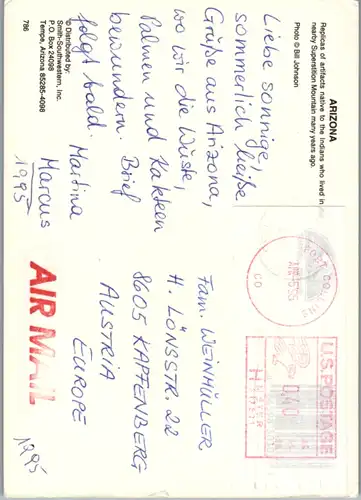 ARIZONA
Replicas of artifacts native to the Indians who lived in
nearby Superstition Mountain many years ago.
Photo © Bill Johnson
Liebe sonnige,
sommerlich heiße
Grüße aus Arizona,
wo wir die Wüste,
Palmen und Kakteen
bewundern. Brief
folgt bald. Martina
Marcus
1995
© Distributed by:
Smith-Southwestern, Inc.
P.O. Box 24098
Tempe, Arizona 85285-4098
786
FORT COLLINS
CO
U.S. POSTAGE
H METER
Fam. WEINHÜLLER
H. LÖNSSTR. 22
8605 KAPFENBERG
AUSTRIA
EUROPE
AIR MAIL
1995